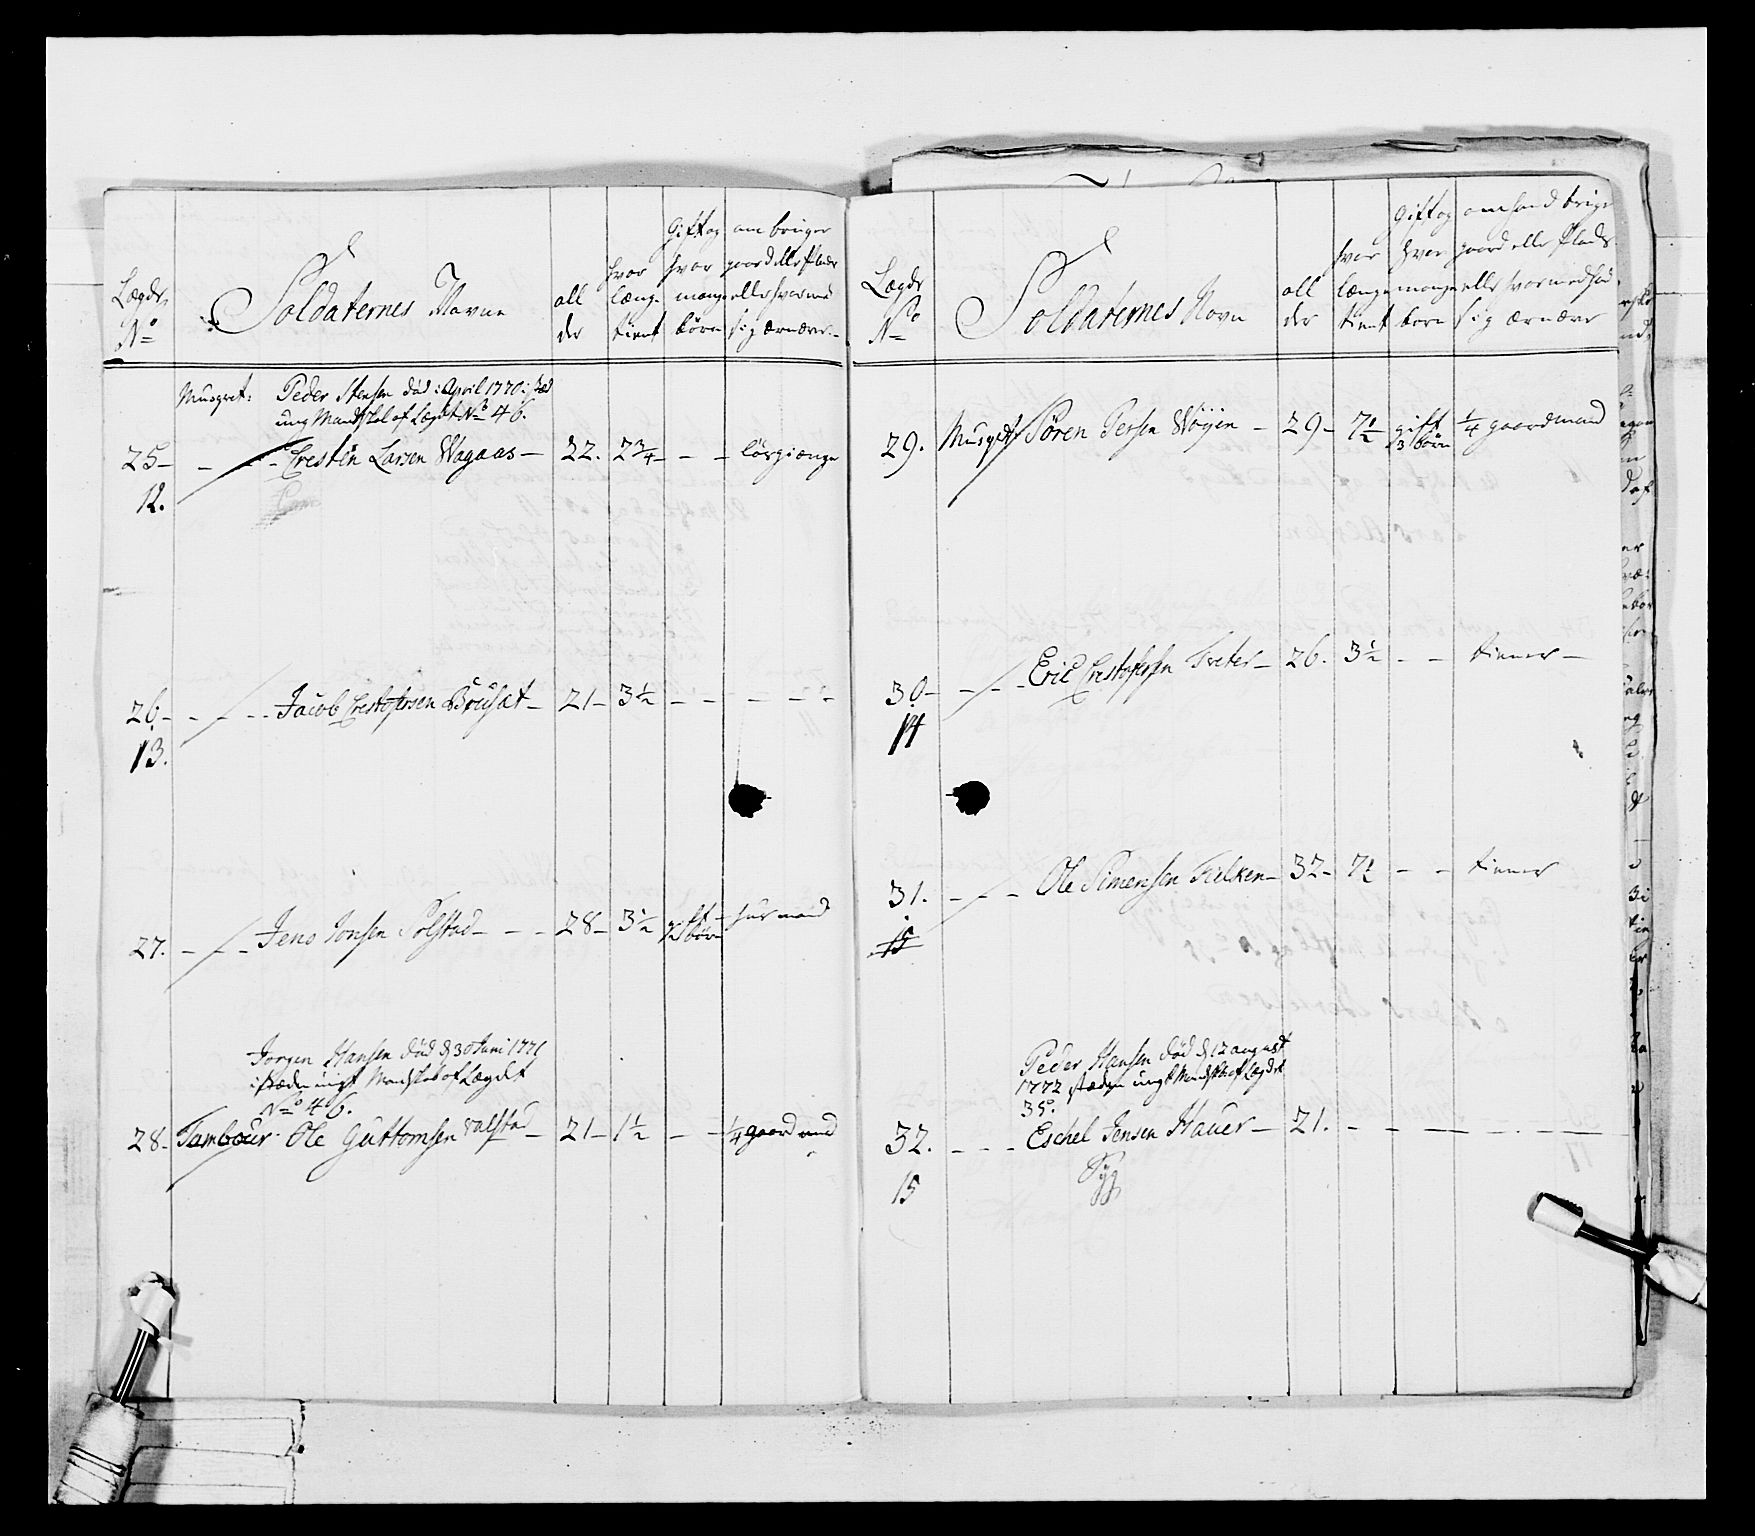 Lægds No
Soldaternes Navne
all der
hvor længe tient
Gift og hvor mange børn
om bruger gaard elle Plads elle hvormed sig ernærer
Musqret: Peder Stensen død i April 1770 i sted
ung Mandskab af Lægdet No 46.
25 - - - Cresten Larsen Wagaas - 22. 2 3/4 - - - lösgiænge
12.
26 - - - Jacob Crestofersen Brusæt - 21 - 3 1/2 - - - - -
13.
27. - - - Jens Jonsen Solstad - - - 28 - 3 1/2 2 börn husmand
Jorgen Hansen död d 30 Juni 1771
i stæden ungt Mandskab af Lægdet
No 46.
28 - Tambour Ole Guttomsen valstad - 21 - 1 1/2 - - 1/4 gaardmand
Lægds No
Soldaternes Navn
all der
hvor længe tient
Gift og hver mange born
om hand brüge gaard elle Plads elle hvormed hand sig ernære
29. Musqret Sören Persen Wöyen - 29 - 7 1/2 gift 3 börn 1/4 gaardmand
30 - - - Eric Crestofersen Treter - 26. 3 1/2 - - tiener -
14
31. - - - Ole Simensen Fielken - 32 - 7 1/2 - - tiener
15
Peder Hansen död d 12 august
1772 stæden ungt Mandskab af Lægdet
35.
32. - - - Eschel Jensen Hauer - 21. - - - - -
15
Syg